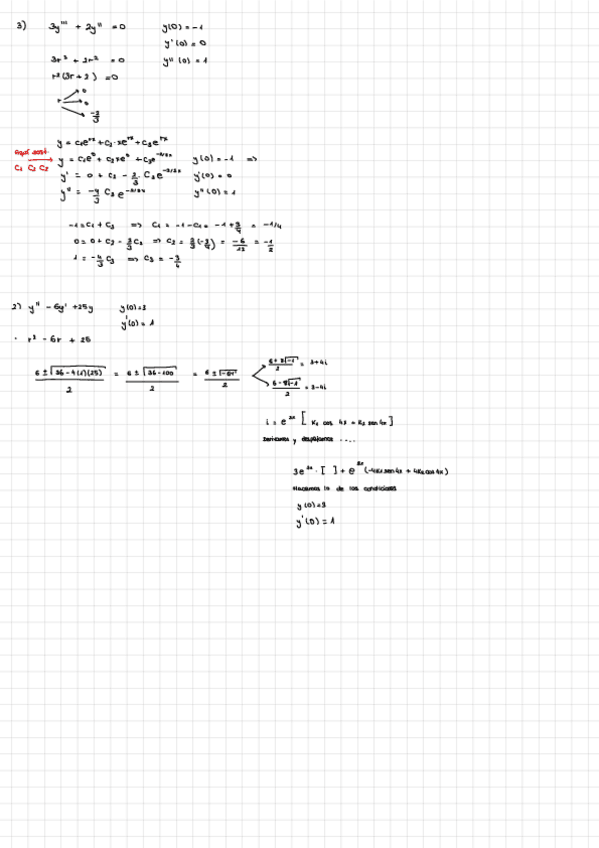 3) 3y''' + 2y'' = 0 y(0) = -1
y'(0) = 0
3r³ + 2r² = 0 y''(0) = 1
r²(3r + 2) = 0
r 0
0
-2/3
y = c₁e^rx + c₂·xe^rx + c₃e^rx
y = c₁e⁰ + c₂xe⁰ + c₃e^-2/3x y(0) = -1 =>
C₁ C₂ C₃
y' = 0 + c₂ - 2/3 · C₃e^-2/3x y'(0) = 0
y'' = -4/9 C₃e^-2/3x y''(0) = 1
-1 = C₁ + C₃ => C₁ = -1 - C₁ = -1 + 3/4 = -1/4
0 = 0 + C₂ - 2/3 C₃ => C₂ = 2/3 (-3/4) = -6/12 = -1/2
1 = -4/3 C₃ => C₃ = -3/4
2) y'' - 6y' + 25y y(0) = 3
y'(0) = 1
· r² - 6r + 25
6 ± √36 - 4(1)(25) / 2 = 6 ± √36 - 100 / 2 = 6 ± √-64 / 2
6 + 8√-1 / 2 = 3 + 4i
6 - 8√-1 / 2 = 3 - 4i
i = e^3x [ K₁ cos 4x + K₂ sen 4x ]
Derivamos y despejamos ....
3e^3x · [ ] + e^3x (-4K₁ sen 4x + 4K₂ cos 4x)
Hacemos lo de las condiciones
y(0) = 3
y'(0) = 1